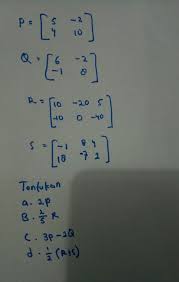 P = [ 5 -2
4 10 ]
Q = [ 6 -2
-1 8 ]
R = [ 10 -20 5
-10 0 -40 ]
S = [ -1 8 4
18 -7 2 ]
Tentukan
a. 2P
B. 2/5 R
C. 3P - 2Q
d. 1/2 (R+S)